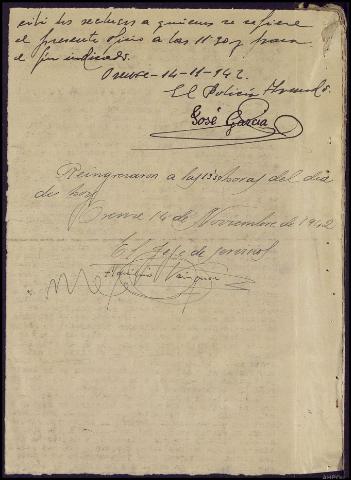 cibí los reclusos a quienes se refiere
el presente oficio a las 11'30 y para
el fin indicado.
Orense-14-11-942.
El Policía Armado.
José García
Reingresaron a las horas del día
de hoy
Orense 14 de Noviembre de 1942
El Jefe de servicios